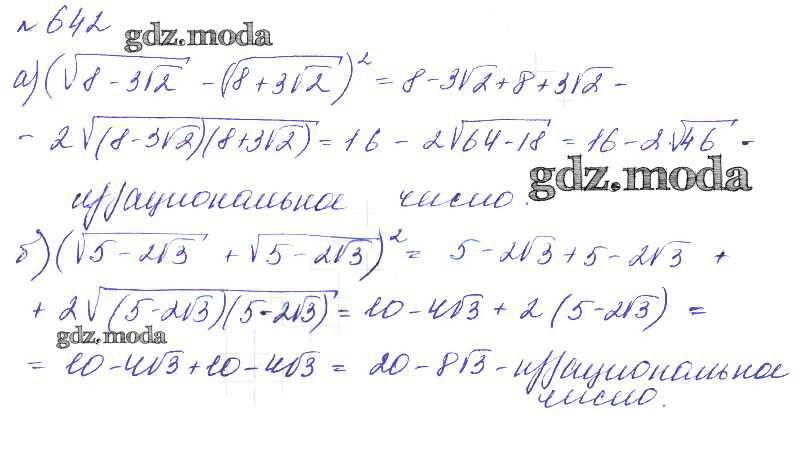 № 642
gdz.moda
а) (√(8-3√2) - (√(8+3√2))² = 8-3√2+8+3√2 -
- 2√((8-3√2)(8+3√2)) = 16 - 2√(64-18) = 16-2√46 -
gdz.moda
иррациональное число.
б) (√(5-2√3) + √(5-2√3))² = 5-2√3+5-2√3 +
+ 2√((5-2√3)(5-2√3)) = 10-4√3 + 2(5-2√3) =
gdz.moda
= 10-4√3+10-4√3 = 20-8√3 - иррациональное
число.